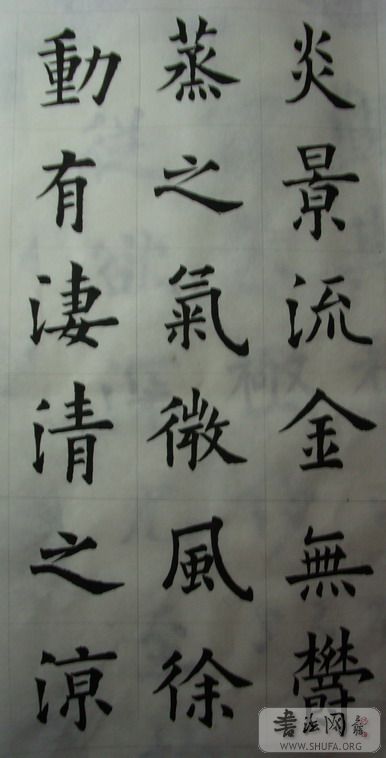 炎景流金無鬱
蒸之氣微風徐
動有淒清之涼
書法网
WWW.SHUFA.ORG